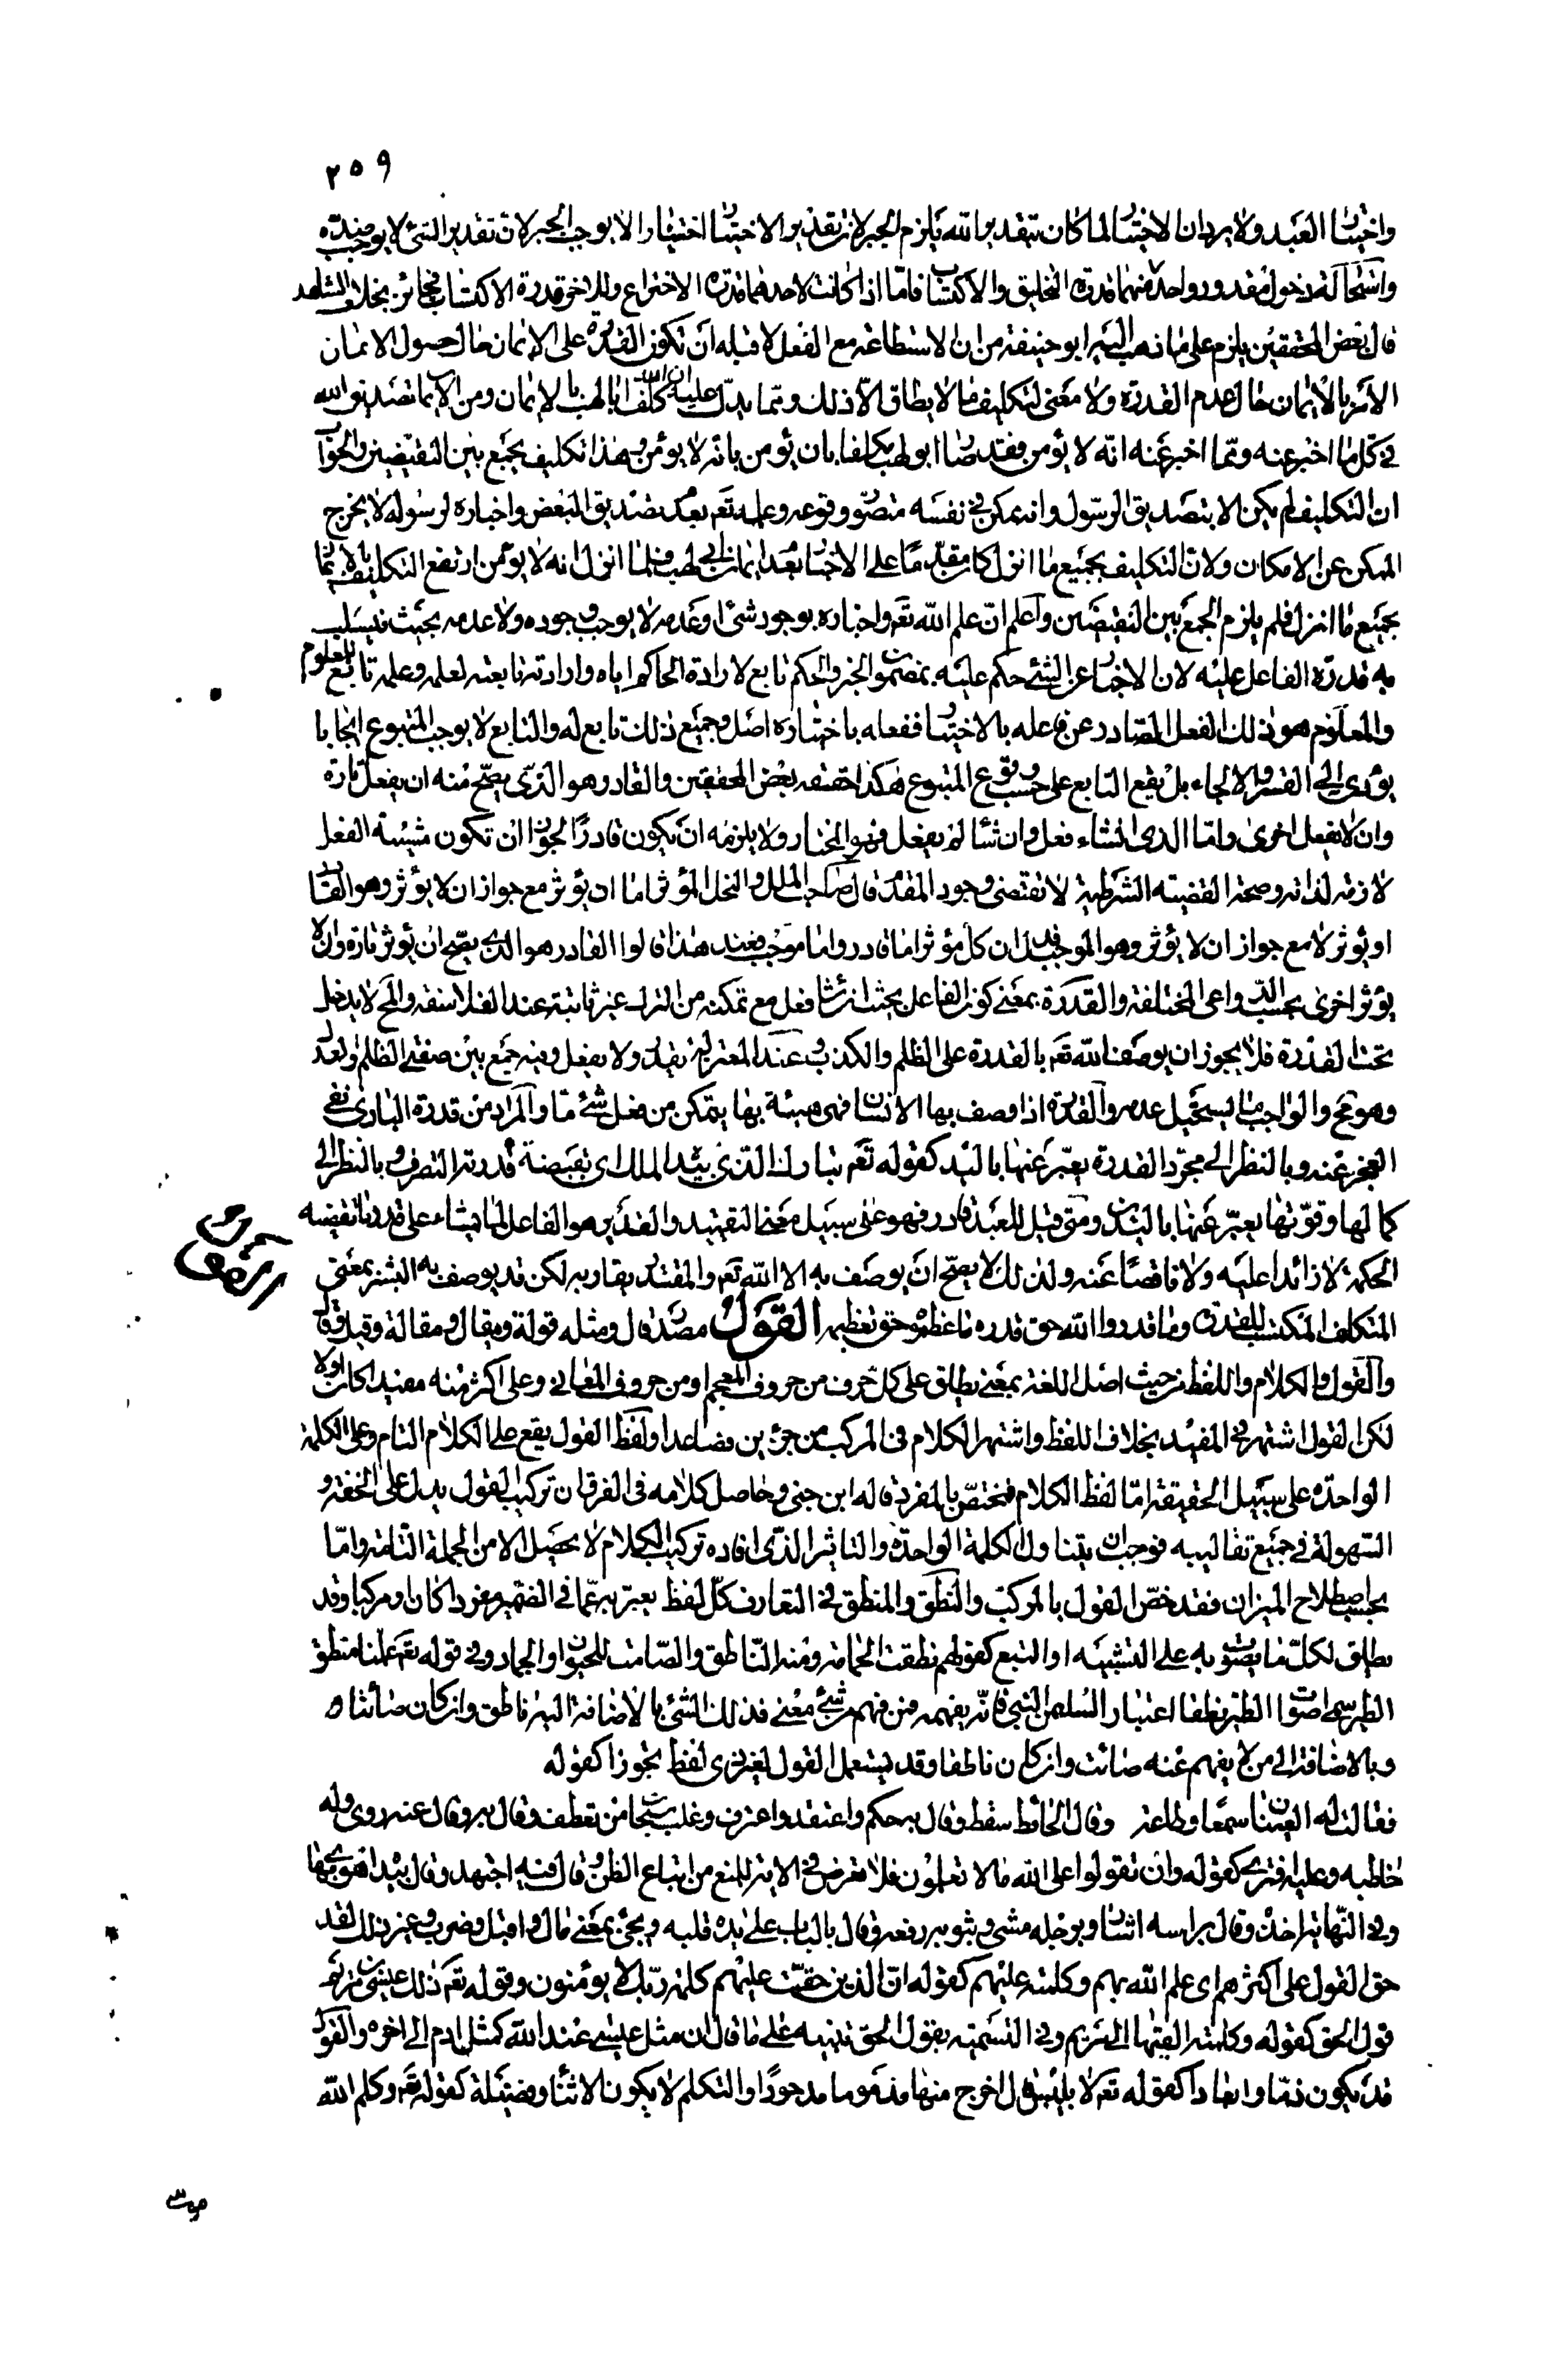 ٢٥٩
واختيار العبد ولا يرد ان الاختيار لما كان بتقدير الله يلزم الجبر لان تقدير الاختيار اختيارا لا يوجب الجبر لان تقدير الشئ لا يوجب ضده
واستحالة دخول مقدور واحد تحت قدرة التخليق والاكتساب فاما اذا كانت لاحدهما قدرة الاختراع وللاخر قدرة الاكتساب فجائز بخلاف الشاهد
قال بعض المحققين يلزم على ما ذهب اليه ابو حنيفة من ان الاستطاعة مع الفعل لا قبله ان تكون القدرة على الايمان حال حصول الايمان
الامر بالايمان حال عدم القدرة ولا معنى لتكليف ما لا يطاق الا ذلك ومما يدل عليه ان الله كلف ابا لهب بالايمان ومن الايمان تصديق الله
في كل ما اخبر عنه ومما اخبر عنه انه لا يؤمن فقد صار ابو لهب مكلفا بان يؤمن بانه لا يؤمن وهذا تكليف بجمع بين النقيضين والجواب
ان التكليف لم يكن الا بتصديق الرسول وانه ممكن في نفسه متصور وقوعه وعلمه تعم بعدم تصديق البعض واخباره لرسوله لا يخرج
الممكن عن الامكان ولان التكليف بجميع ما انزل كان مقدما على الاخبار بعدم ايمان ابي لهب فلما انزل انه لا يؤمن ارتفع التكليف بالايمان
بجميع ما انزل فلم يلزم الجمع بين النقيضين واعلم ان علم الله تعم واخباره بوجود شئ او عدمه لا يوجب وجوده ولا عدمه بحيث ينسلب
به قدرة الفاعل عليه لان الاخبار عن الشئ حكم عليه بمضمون الخبر والحكم تابع لارادة الحاكم اياه وارادته تابعة لعلمه وعلمه تابع للمعلوم
والمعلوم هو ذلك الفعل الصادر عن فاعله بالاختيار ففعله باختياره اصل وجميع ذلك تابع له والتابع لا يوجب المتبوع ايجابا
يؤدي الى القسر والالجاء بل يقع التابع على حسب وقوع المتبوع هكذا حققه بعض المحققين والقادر هو الذي يصح منه ان يفعل تارة
وان لا يفعل اخرى واما الذي ان شاء فعل وان شاء لم يفعل فهو المختار ولا يلزمه ان يكون قادرا لجواز ان تكون مشيئة الفعل
لازمة لذاته وصحة القضية الشرطية لا تقتضي وجود المقدم قال صاحب الملل والنحل المؤثر اما ان يؤثر مع جواز ان لا يؤثر وهو القادر
او يؤثر لا مع جواز ان لا يؤثر وهو الموجب فدل ان كل مؤثر اما قادر واما موجب فعند هذا قالوا القادر هو الذي يصح ان يؤثر تارة وان لا
يؤثر اخرى بحسب الدواعي المختلفة والقدرة بمعنى كون الفاعل بحيث ان شاء فعل مع تمكنه من الترك غير ثابتة عند الفلاسفة والمح لا يدخل
تحت القدرة فلا يجوز ان يوصف الله تعم بالقدرة على الظلم والكذب وعند المعتزلة يقدر ولا يفعل وفيه جمع بين صفتي الظلم والعدل
وهو مح والواجب ما يستحيل عدمه والقدرة اذا وصف بها الانسان فهي هيئة بها يتمكن من فعل شئ ما والمراد من قدرة الباري نفي
العجز عنه وبالنظر الى مجرد القدرة يعبر عنها باليد كقوله تعم تبارك الذي بيده الملك اي بقبضة قدرته التصرف وبالنظر الى
كمالها وقوتها يعبر عنها باليدين ومتى قيل للعبد قادر فهو على سبيل معنى التقييد والقدير هو الفاعل لما يشاء على قدر ما تقتضيه
الحكمة لا زائدا عليه ولا ناقصا عنه ولذلك لا يصح ان يوصف به الا الله تعم والمقتدر يقاربه لكن قد يوصف به البشر بمعنى
المتكلف المكتسب للقدرة وما قدروا الله حق قدره ما عظموه حق تعظيمه القول مصدر قال ومثله قولة ومقال ومقالة وقيل وقال
والقول والكلام واللفظ من حيث اصل اللغة بمعنى يطلق على كل حرف من حروف المعجم او من حروف المعاني وعلى اكثر منه مفيدا كان اولا
لكن القول اشتهر في المفيد بخلاف اللفظ واشتهر الكلام في المركب من جزئين فصاعدا ولفظ القول يقع على الكلام التام وعلى الكلمة
الواحدة على سبيل الحقيقة اما لفظ الكلام فمختص بالمفرد قاله ابن جني وحاصل كلامه في الفرق ان تركيب القول يدل على الخفة و
السهولة في جميع تقاليبه فوجب ان يتناول الكلمة الواحدة والتاثير الذي افاده تركيب الكلام لا يحصل الا من الجملة التامة واما
بحسب اصطلاح الميزان فقد خص القول بالمركب والنطق والمنطق في التعارف كل لفظ يعبر به عما في الضمير مفردا كان او مركبا وقد
يطلق لكل ما يصوت به على التشبيه او التبع كقولهم نطقت الحمامة ومنه الناطق والصامت للحيوان والجماد وفي قوله تعم علمنا منطق
الطير سمى اصوات الطير نطقا اعتبارا لسليمن النبي فانه يفهمه فمن فهم من شئ معنى فذلك الشئ بالاضافة اليه ناطق وان كان صامتا و
وبالاضافة الى من لا يفهم عنه صامت وان كان ناطقا وقد يستعمل القول لغير ذي لفظ تجوزا كقوله
فقالت له العينان سمعا وطاعة وقال الحائط سقط وقال به حكم واعتقد واعترف وغلب وقال به وقال عنه روى وله
خاطبه وعليه افترى كقوله وان تقولوا على الله ما لا تعلمون فلا تعرض في الاية للمنع من اتباع الظن وقال فيه اجتهد وقال بيده اهوى بها
وفي النهاية اخذ وقال براسه اشار وبرجله مشى وبثوبه رفعه وقال بالباب على يده قلبه ويجئ بمعنى مال واقبل وضرب وغير ذلك لقد
حق القول على اكثرهم اي علم الله بهم وكلمته عليهم كقوله ان الذين حقت عليهم كلمة ربك لا يؤمنون وقوله تعم ذلك عيسى بن مريم
قول الحق كقوله وكلمته القيها الى مريم وفي التسمية بقول الحق تنبيه على ما قال ان مثل عيسى عند الله كمثل ادم الى اخره والقول
قد يكون ذما وابعادا كقوله تعم لابليس قال اخرج منها مذموما مدحورا والتكلم لا يكون الا ثناء وفضيلة كقوله تعم وكلم الله
القول